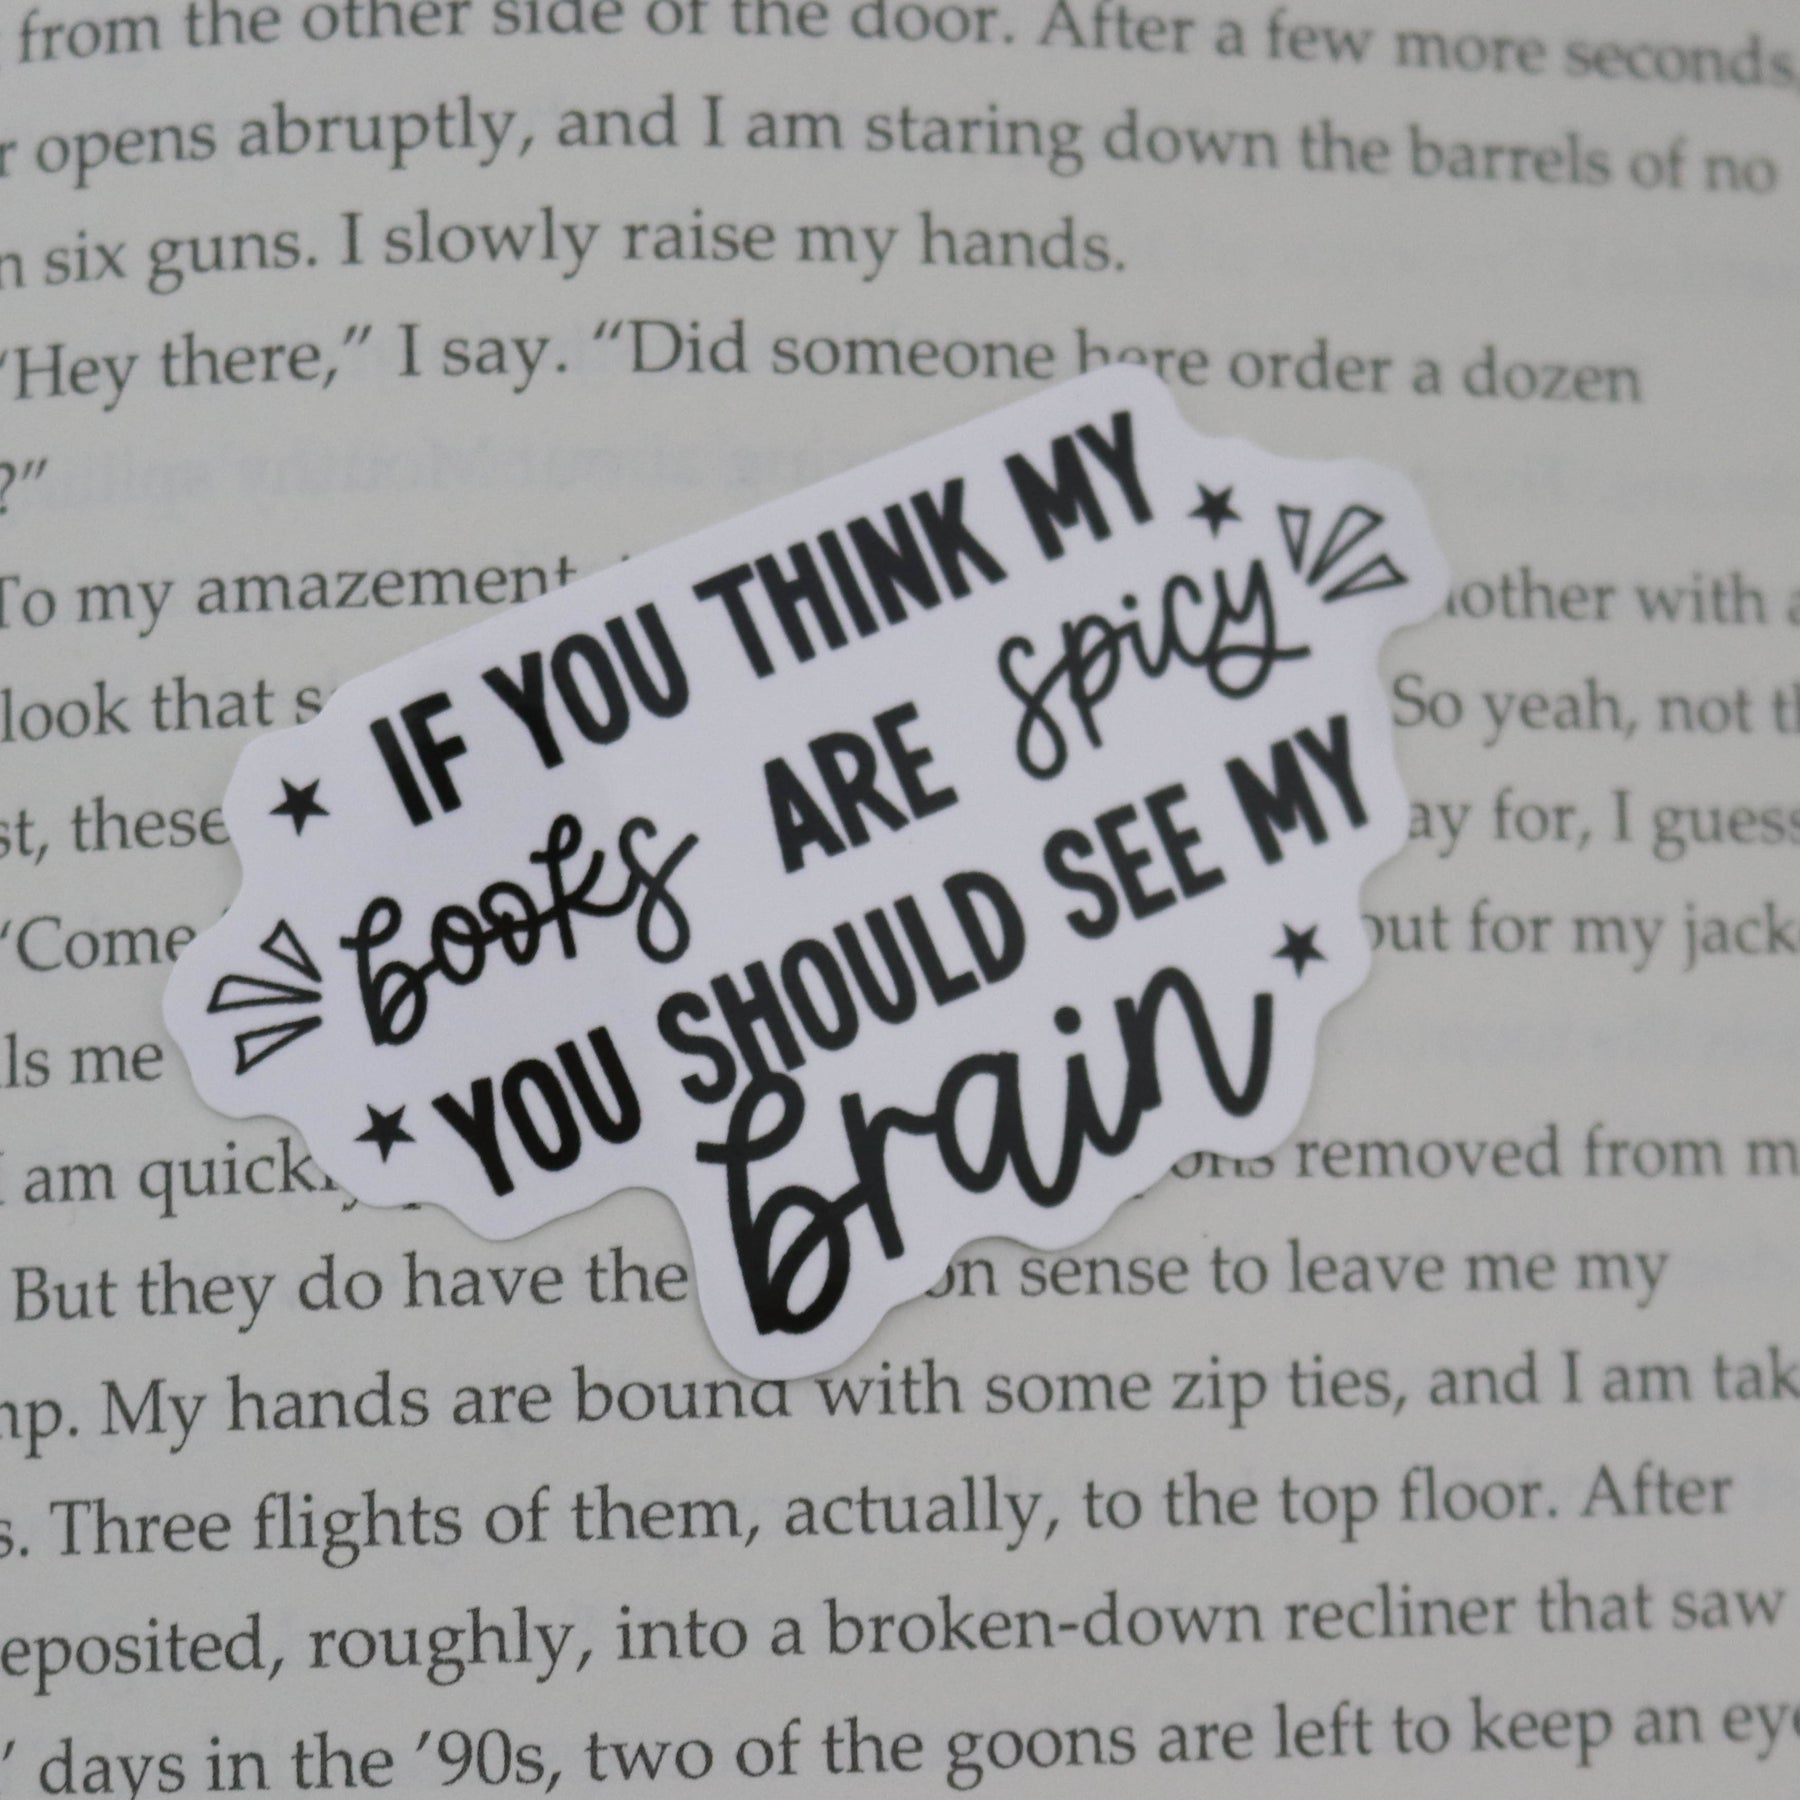 from the other side of the door. After a few more seconds,
opens abruptly, and I am staring down the barrels of no
six guns. I slowly raise my hands.
"Hey there," I say. "Did someone here order a dozen
?"
To my amazement other with a
look that So yeah, not
these ay for, I guess
"Come out for my jack
ls me
I am quickly removed from m
But they do have the on sense to leave me my
mp. My hands are bound with some zip ties, and I am tak
s. Three flights of them, actually, to the top floor. After
eposited, roughly, into a broken-down recliner that saw
' days in the '90s, two of the goons are left to keep an eye
★ IF YOU THINK MY ★
books ARE spicy
★ YOU SHOULD SEE MY
brain ★